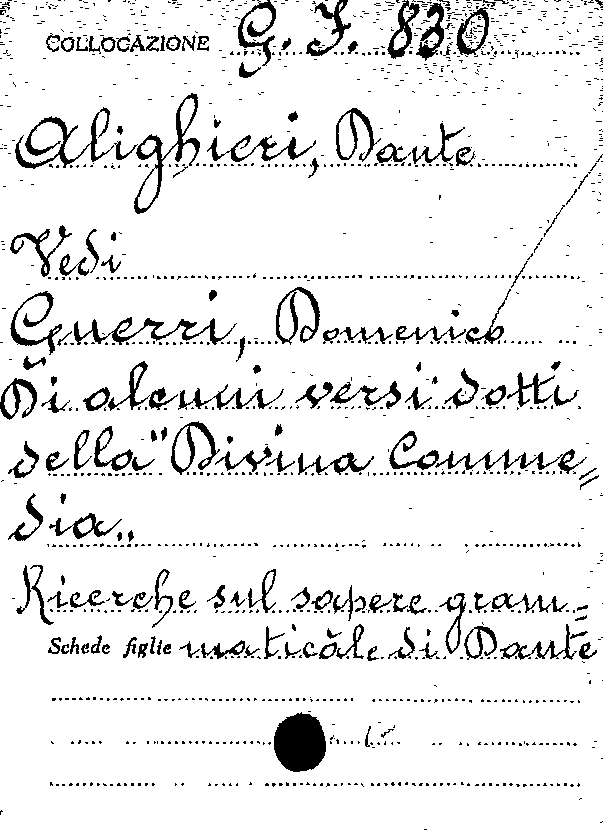 COLLOCAZIONE G. F. 830
Alighieri, Dante
Vedi
Guerri, Domenico
Di alcuni versi dotti
della "Divina Comme=
dia„
Ricerche sul sapere gram=
Schede figlie maticale di Dante